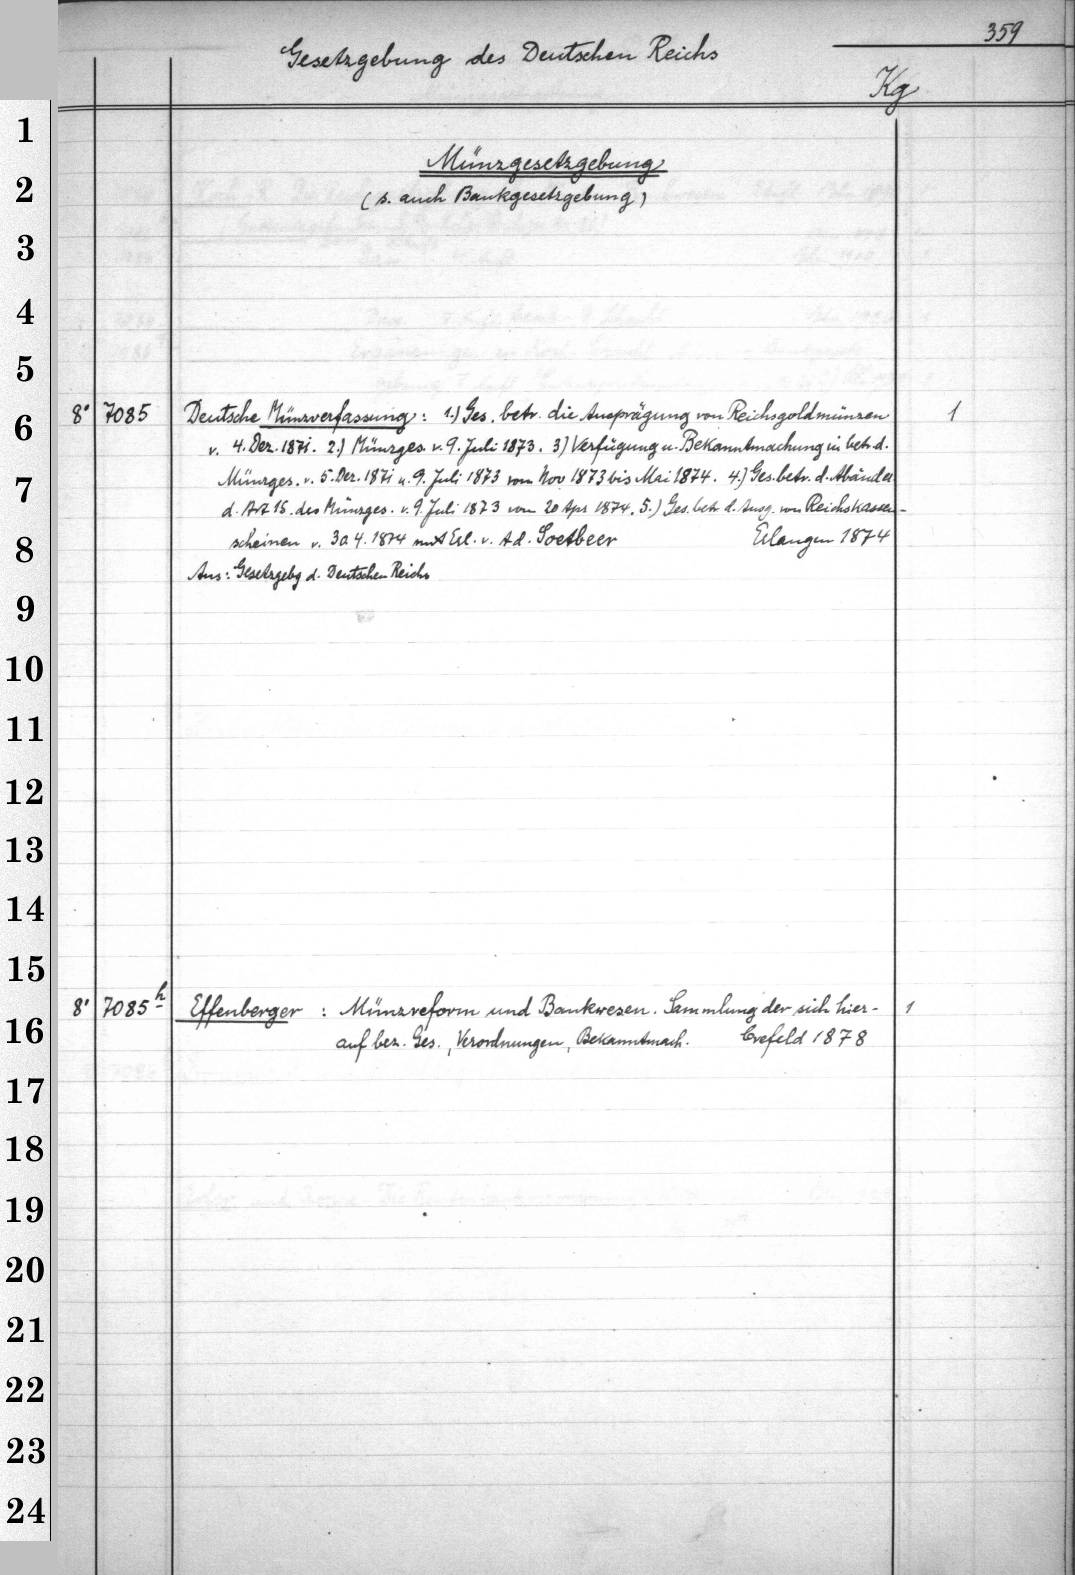 359
Gesetzgebung des Deutschen Reichs
Kg
1
Münzgesetzgebung
2
(s. auch Bankgesetzgebung)
3
4
5
6
8° 7085 Deutsche Münzverfassung: 1.) Ges. betr. die Ausprägung von Reichsgoldmünzen 1
v. 4. Dez. 1871. 2.) Münzges. v. 9. Juli 1873. 3) Verfügung u. Bekanntmachung in betr. d.
7
Münzges. v. 5. Dez. 1871 u. 9. Juli 1873 vom Nov 1873 bis Mai 1874. 4.) Ges. betr. d. Abänder
d. Art 15. des Münzges. v. 9. Juli 1873 vom 20 Apr 1874. 5.) Ges. betr d. Ausg. von Reichskassen-
8
scheinen v. 30 4. 1874 mit Erl. v. Ad. Soetbeer Erlangen 1874
Aus: Gesetzgebg d. Deutschen Reichs
9
10
11
12
13
14
15
8° 7085 h Effenberger : Münzreform und Bankwesen. Sammlung der sich hier- 1
16
auf bez. Ges., Verordnungen, Bekanntmach. Crefeld 1878
17
18
19
20
21
22
23
24